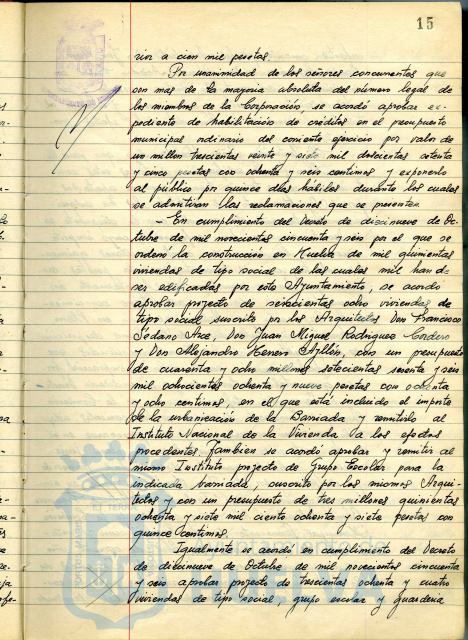 15
rior a cien mil pesetas.
Por unanimidad de los señores concurrentes que
son mas de la mayoria absoluta del número legal de
los miembros de la Corporación se acordó aprobar ex-
pediente de habilitación de créditos en el presupuesto
municipal ordinario del corriente ejercicio por valor de
un millon trescientas veinte y siete mil doscientas setenta
y cinco pesetas con ochenta y seis centimos y exponerlo
al público por quince dias hábiles durante los cuales
se admitiran las reclamaciones que se presenten
- En cumplimiento del Decreto de diecinueve de Oc-
tubre de mil novecientos cincuenta y seis por el que se
ordenó la construcción en Huelva de mil quinientas
viviendas de tipo social de las cuales mil han de
ser edificadas por este Ayuntamiento, se acordo
aprobar proyecto de seiscientas ocho viviendas de
tipo social suscrito por los Arquitectos Don Francisco
Sedano Arce, Don Juan Miguel Rodriguez Cordero
y Don Alejandro Herrero Ayllón, con un presupuesto
de cuarenta y ocho millones setecientas sesenta y seis
mil ochocientas ochenta y nueve pesetas con ochenta
y ocho centimos, en el que está incluido el importe
de la urbanización de la Barriada y remitirlo al
Instituto Nacional de la Vivienda a los efectos
procedentes. Tambien se acordó aprobar y remitir al
mismo Instituto proyecto de Grupo Escolar para la
indicada barriada, suscrito por los mismos Arqui-
tectos y con un presupuesto de tres millones quinientas
ochenta y siete mil ciento ochenta y siete pesetas con
quince centimos.
Igualmente se acordó en cumplimiento del Decreto
de diecinueve de Octubre de mil novecientos cincuenta
y seis aprobar proyecto de trescientas ochenta y cuatro
viviendas de tipo social, grupo escolar y guarderia